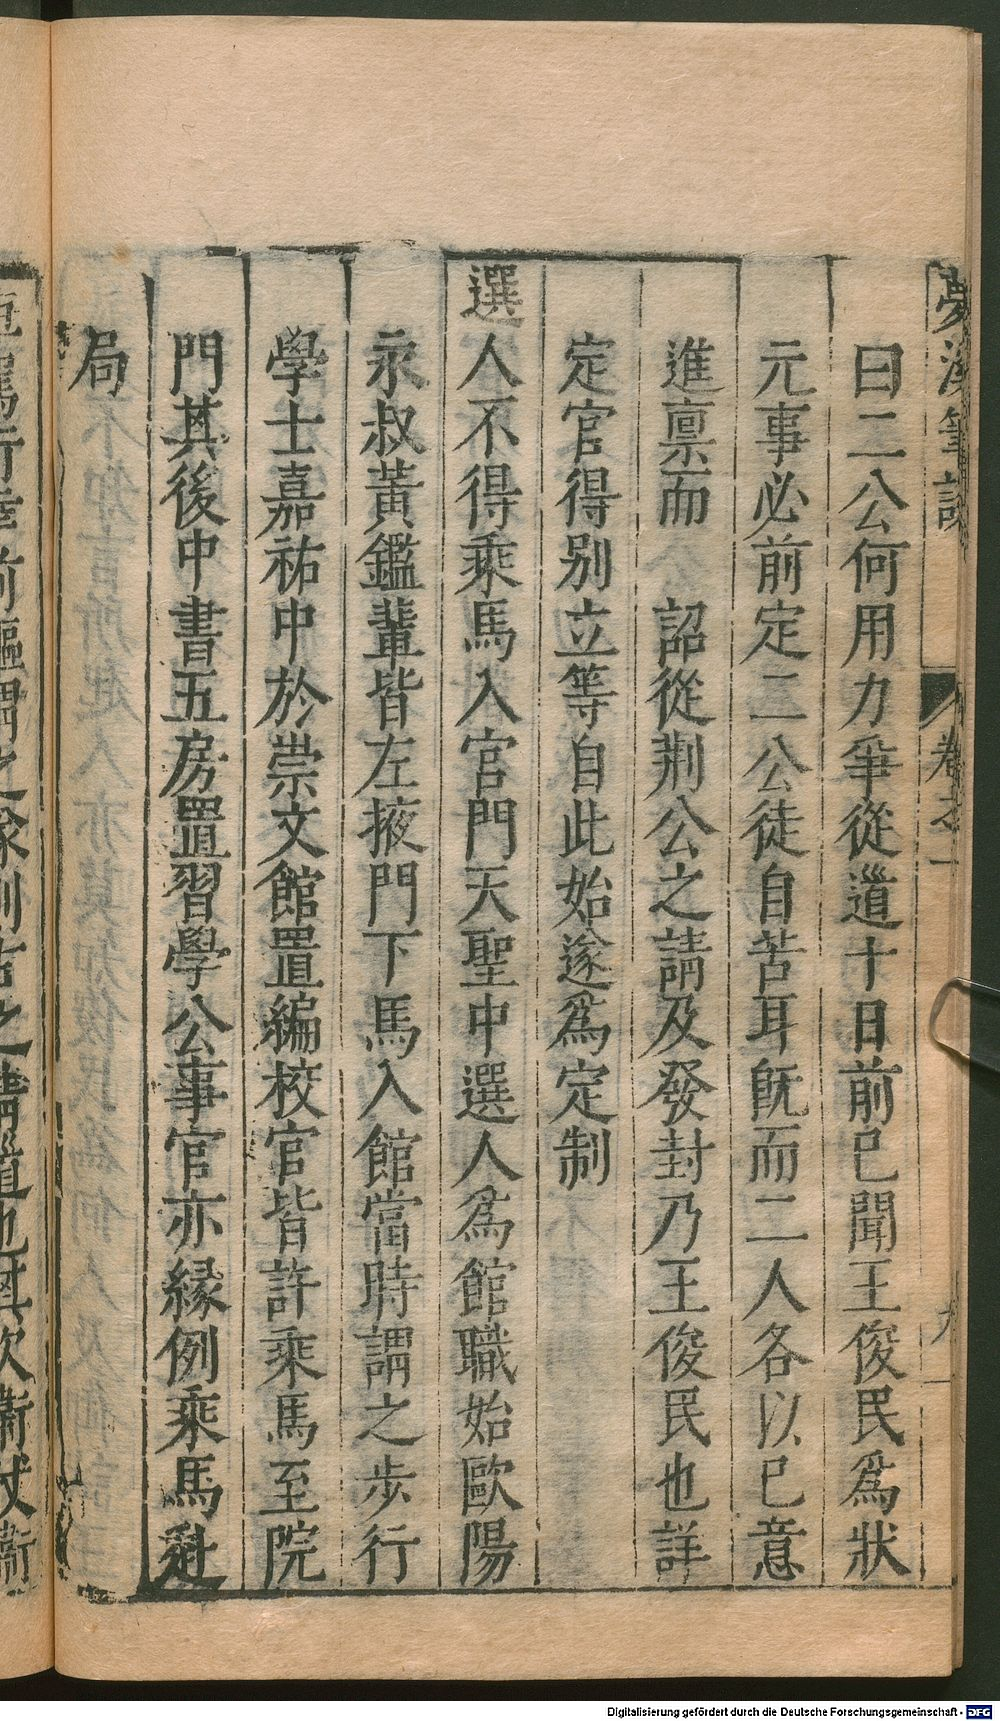 夢溪筆談 卷之一 九
曰二公何用力爭從遒十日前已聞王俊民爲狀
元事必前定二公徒自苦耳旣而二人各以已意
進禀而 詔從荆公之請及發封乃王俊民也詳
定官得别立等自此始遂爲定制
選人不得乘馬入宮門天聖中選人爲館職始歐陽
永叔黃鑑輩皆左掖門下馬入館當時謂之步行
學士嘉祐中於崇文館置編校官皆許乘馬至院
門其後中書五房置習學公事官亦縁例乘馬赴
局
Digitalisierung gefördert durch die Deutsche Forschungsgemeinschaft - DFG